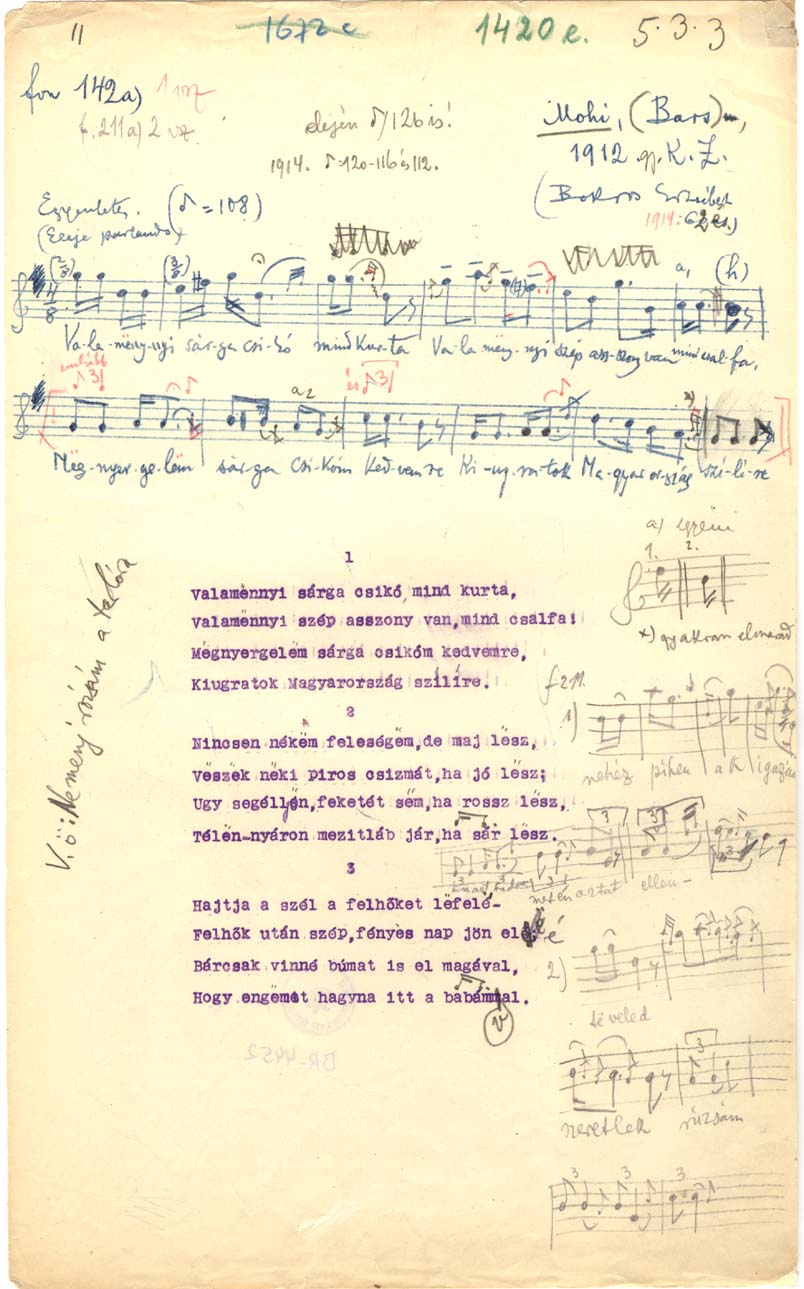 11 1672 e 1420 e. 5.3.3
fon 142a) 1 vsz
f. 211a) 2 vsz.
elején ♪/126 is!
1914. ♪=120-116 és 112.
Mohi, (Bars)m,
1912 gy. K. Z.
(Bokros Erzsébet
1914:
Egyenletes. (♪=108)
(Eleje parlando)
a, (h)
Va-la-mëny-nyi sár-ga csi-kó mind kur-ta Va-la mëny-nyi szép asz-szony van mind csal-fa,
inkább
és
a2
Mëg-nyer-ge-lëm sár-ga Csi-kóm Ked-vem-re Ki-ug-ra-tok Ma-gyar or-szág szí-lí-re
a) egyéni
1. 2.
x) gyakran elmarad
V.ö: Nemenj rózsám a tarlóra
1
Valamënnyi sárga csikó mind kurta,
Valamënnyi szép asszony van,mind csalfa!
Mëgnyergelëm sárga csikóm kedvemre,
Kiugratok Magyarország szílíre.
2
Nincsen nékëm feleségëm,de maj lësz,
Vëszëk nëki piros csizmát,ha jó lësz;
Ugy segéllyën,feketét sëm,ha rossz lësz,
Télën-nyáron mezitláb jár,ha sár lësz.
3
Hajtja a szél a felhőket lëfelé-
Felhők után szép,fényes nap jön elé
Bárcsak vinné búmat is el magával,
Hogy engëmët hagyna itt a babámmal.
f 211.
1)
nehéz pihen a k igazán
3 3
3 3 3
ellen-
2)
té veled
3
szeretlek rózsám
3 3 3
BR-4452